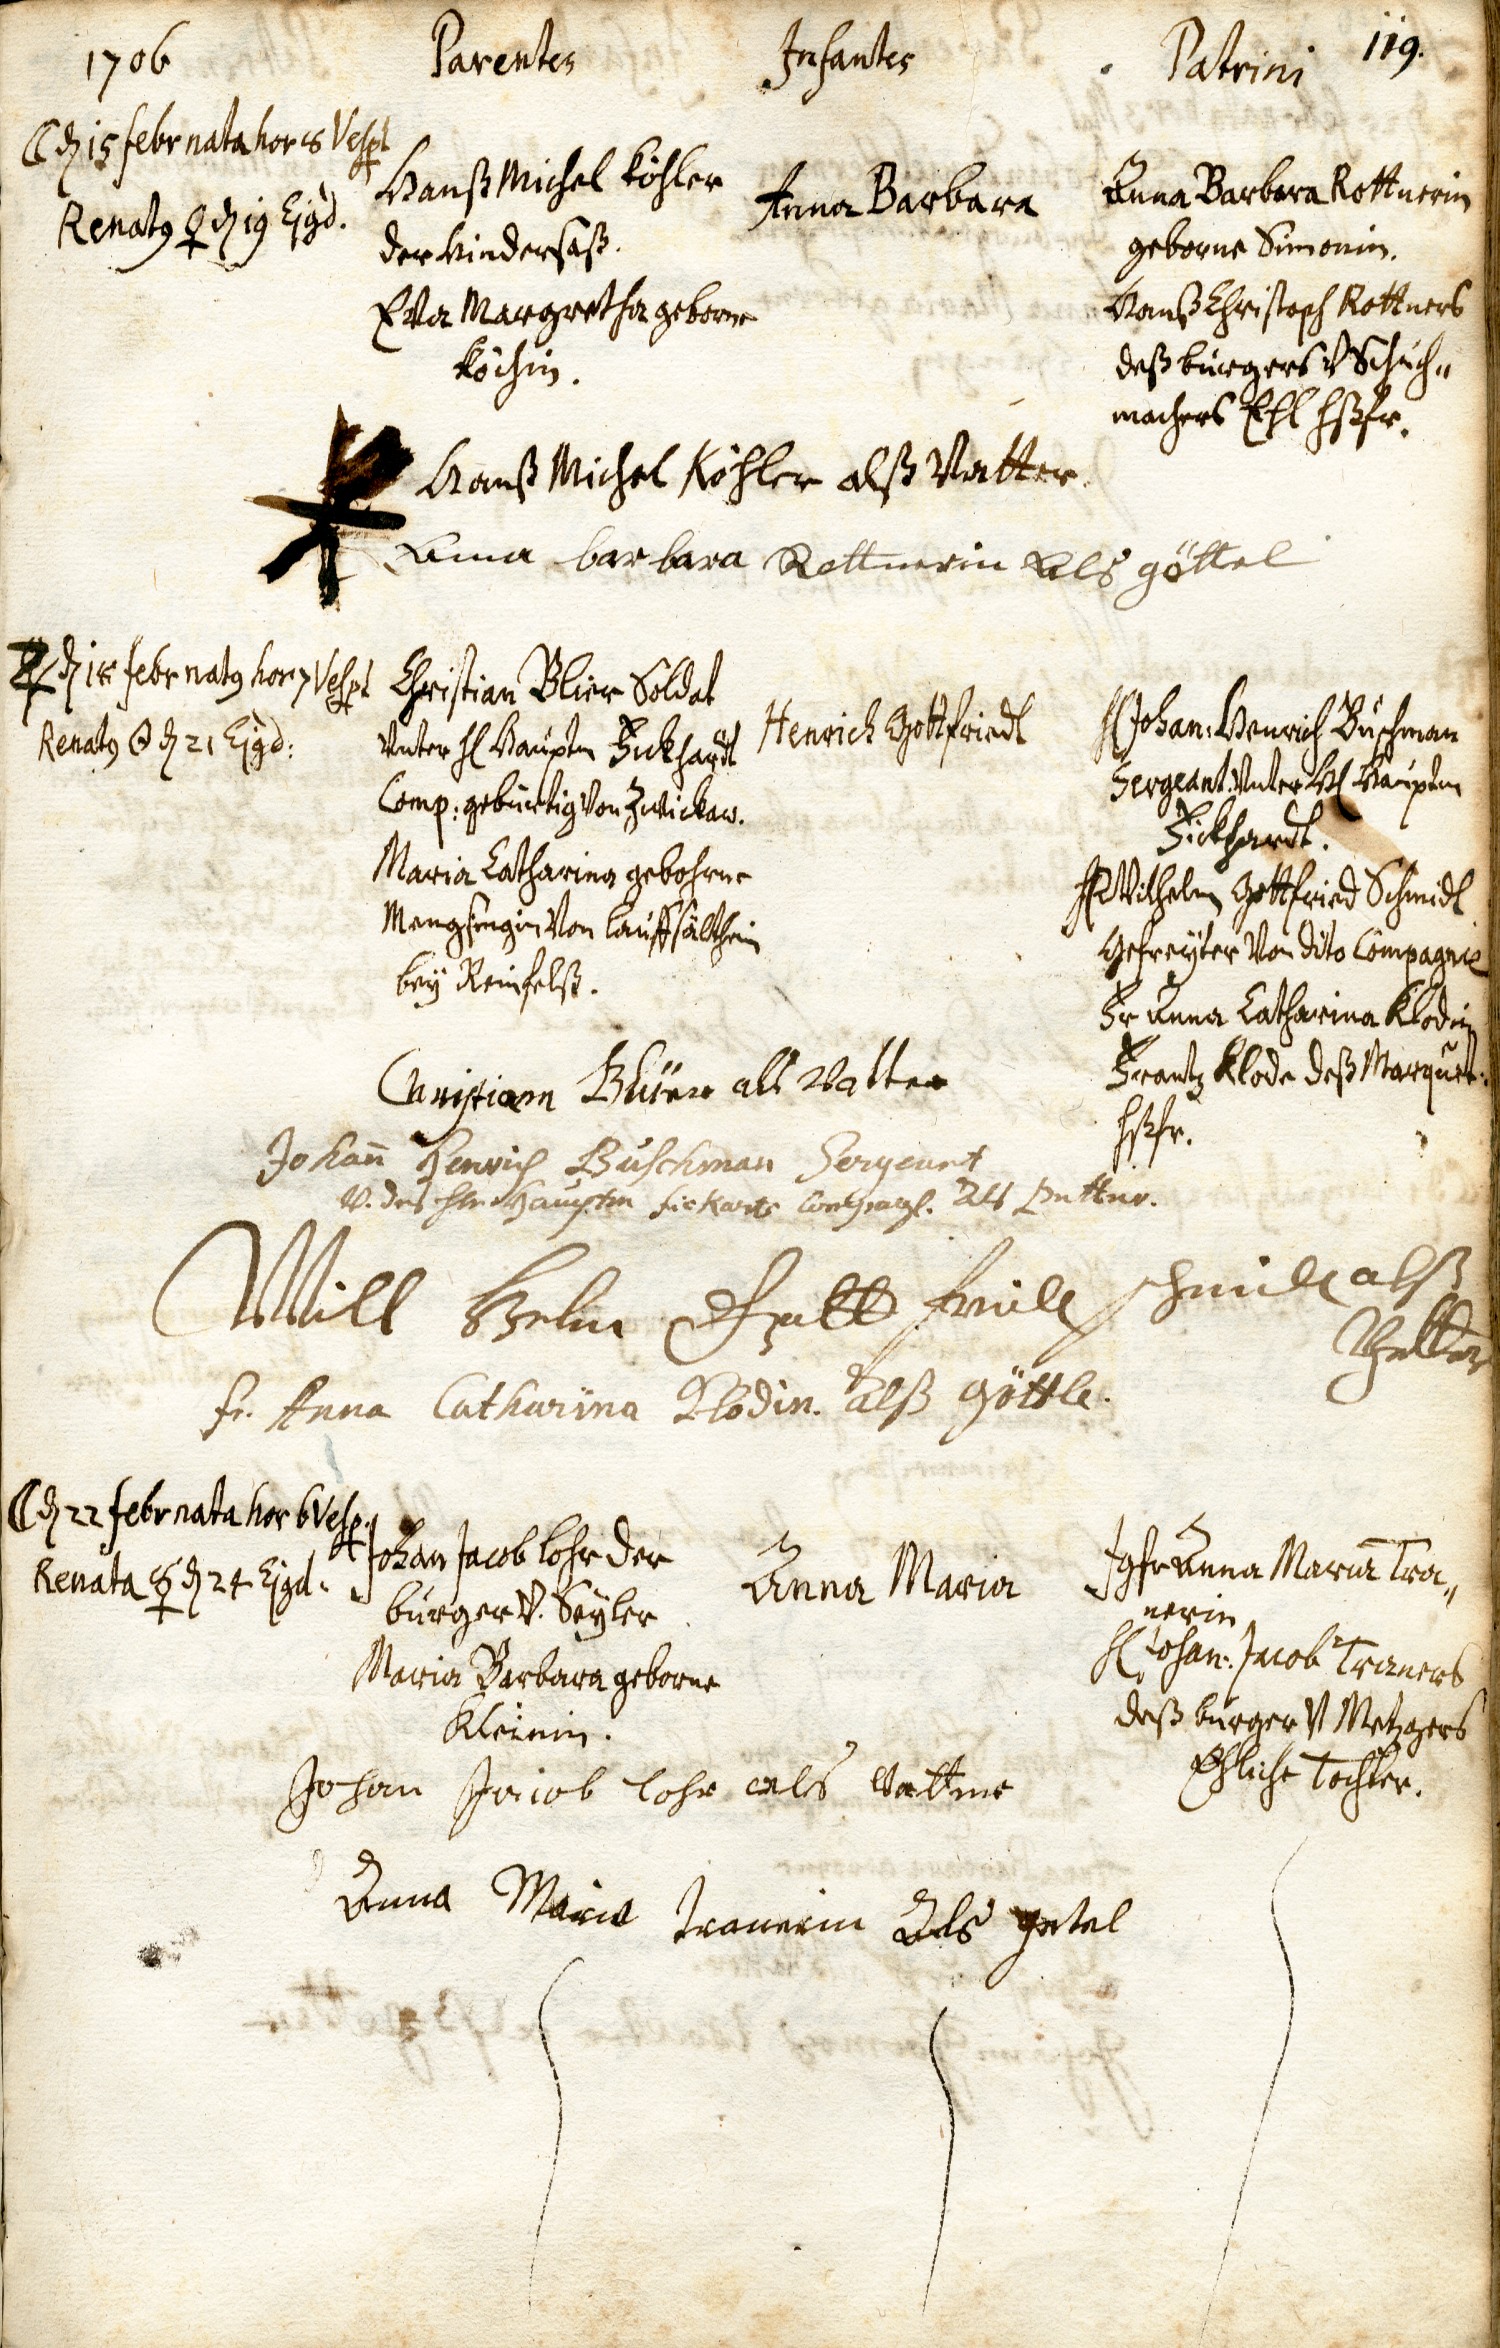 1706 Parentes Infantes Patrini 119.
☾ d 15 febr nata hor 8 Vesp
Renat9 ♀ d 19 Ejgd.
Hanß Michel Köhler
der Hindersaß.
Eva Margretha geborne
Köchin.
Anna Barbara
Anna Barbara Rottnerin
geborne Simonin.
Hanß Christoph Rottners
deß burgers V Schuch„
machers Ehl hßfr.
Hanß Michel Köhler alß Vatter
Anna barbara Rottnerin Als göttel
♃ d 18 febr nat9 hor 7 Vesp
Renat9 ☉ d 21 Ejgd:
Christian Blier Soldat
Vnter H Hauptm Fickhardt
Comp: gebürtig Von Zwickaw.
Maria Catharina gebohrne
Von
beÿ Reinfelß.
Henrich Gottfriedt
H Johan: Henrich Büschman
Sergeant Vnter H Hauptm
Fickhardt.
H Wilhelm Gottfried Schmidt
Gefreÿter Von dito Compagnie
Fr Anna Catharina Klodin
Frantz Klode deß Marquet:
hßfr.
Christian Blüer als Vatter
Johan̄ Henrich Buschman Sergeant
V. des Hr. Hauptm fickarts Compagi. Als
Will helm Gott frid schmidt alß
fr. Anna Catharina Klodin. alß Göttle.
☾ d 22 febr nata hor 6 Vesp.
Renata ☿ d 24 Ejgd.
Johan Jacob Lohr der
burger V. Seÿler
Maria Barbara geborne
Kleinin.
Anna Maria
Jgfr Anna Maria Tra„
nerin
H Johan: Jacob Traners
deß burger V Metzgers
Ehliche Tochter.
Johan Jacob lohr als Vatter
Anna Maria Tranerin Als getel